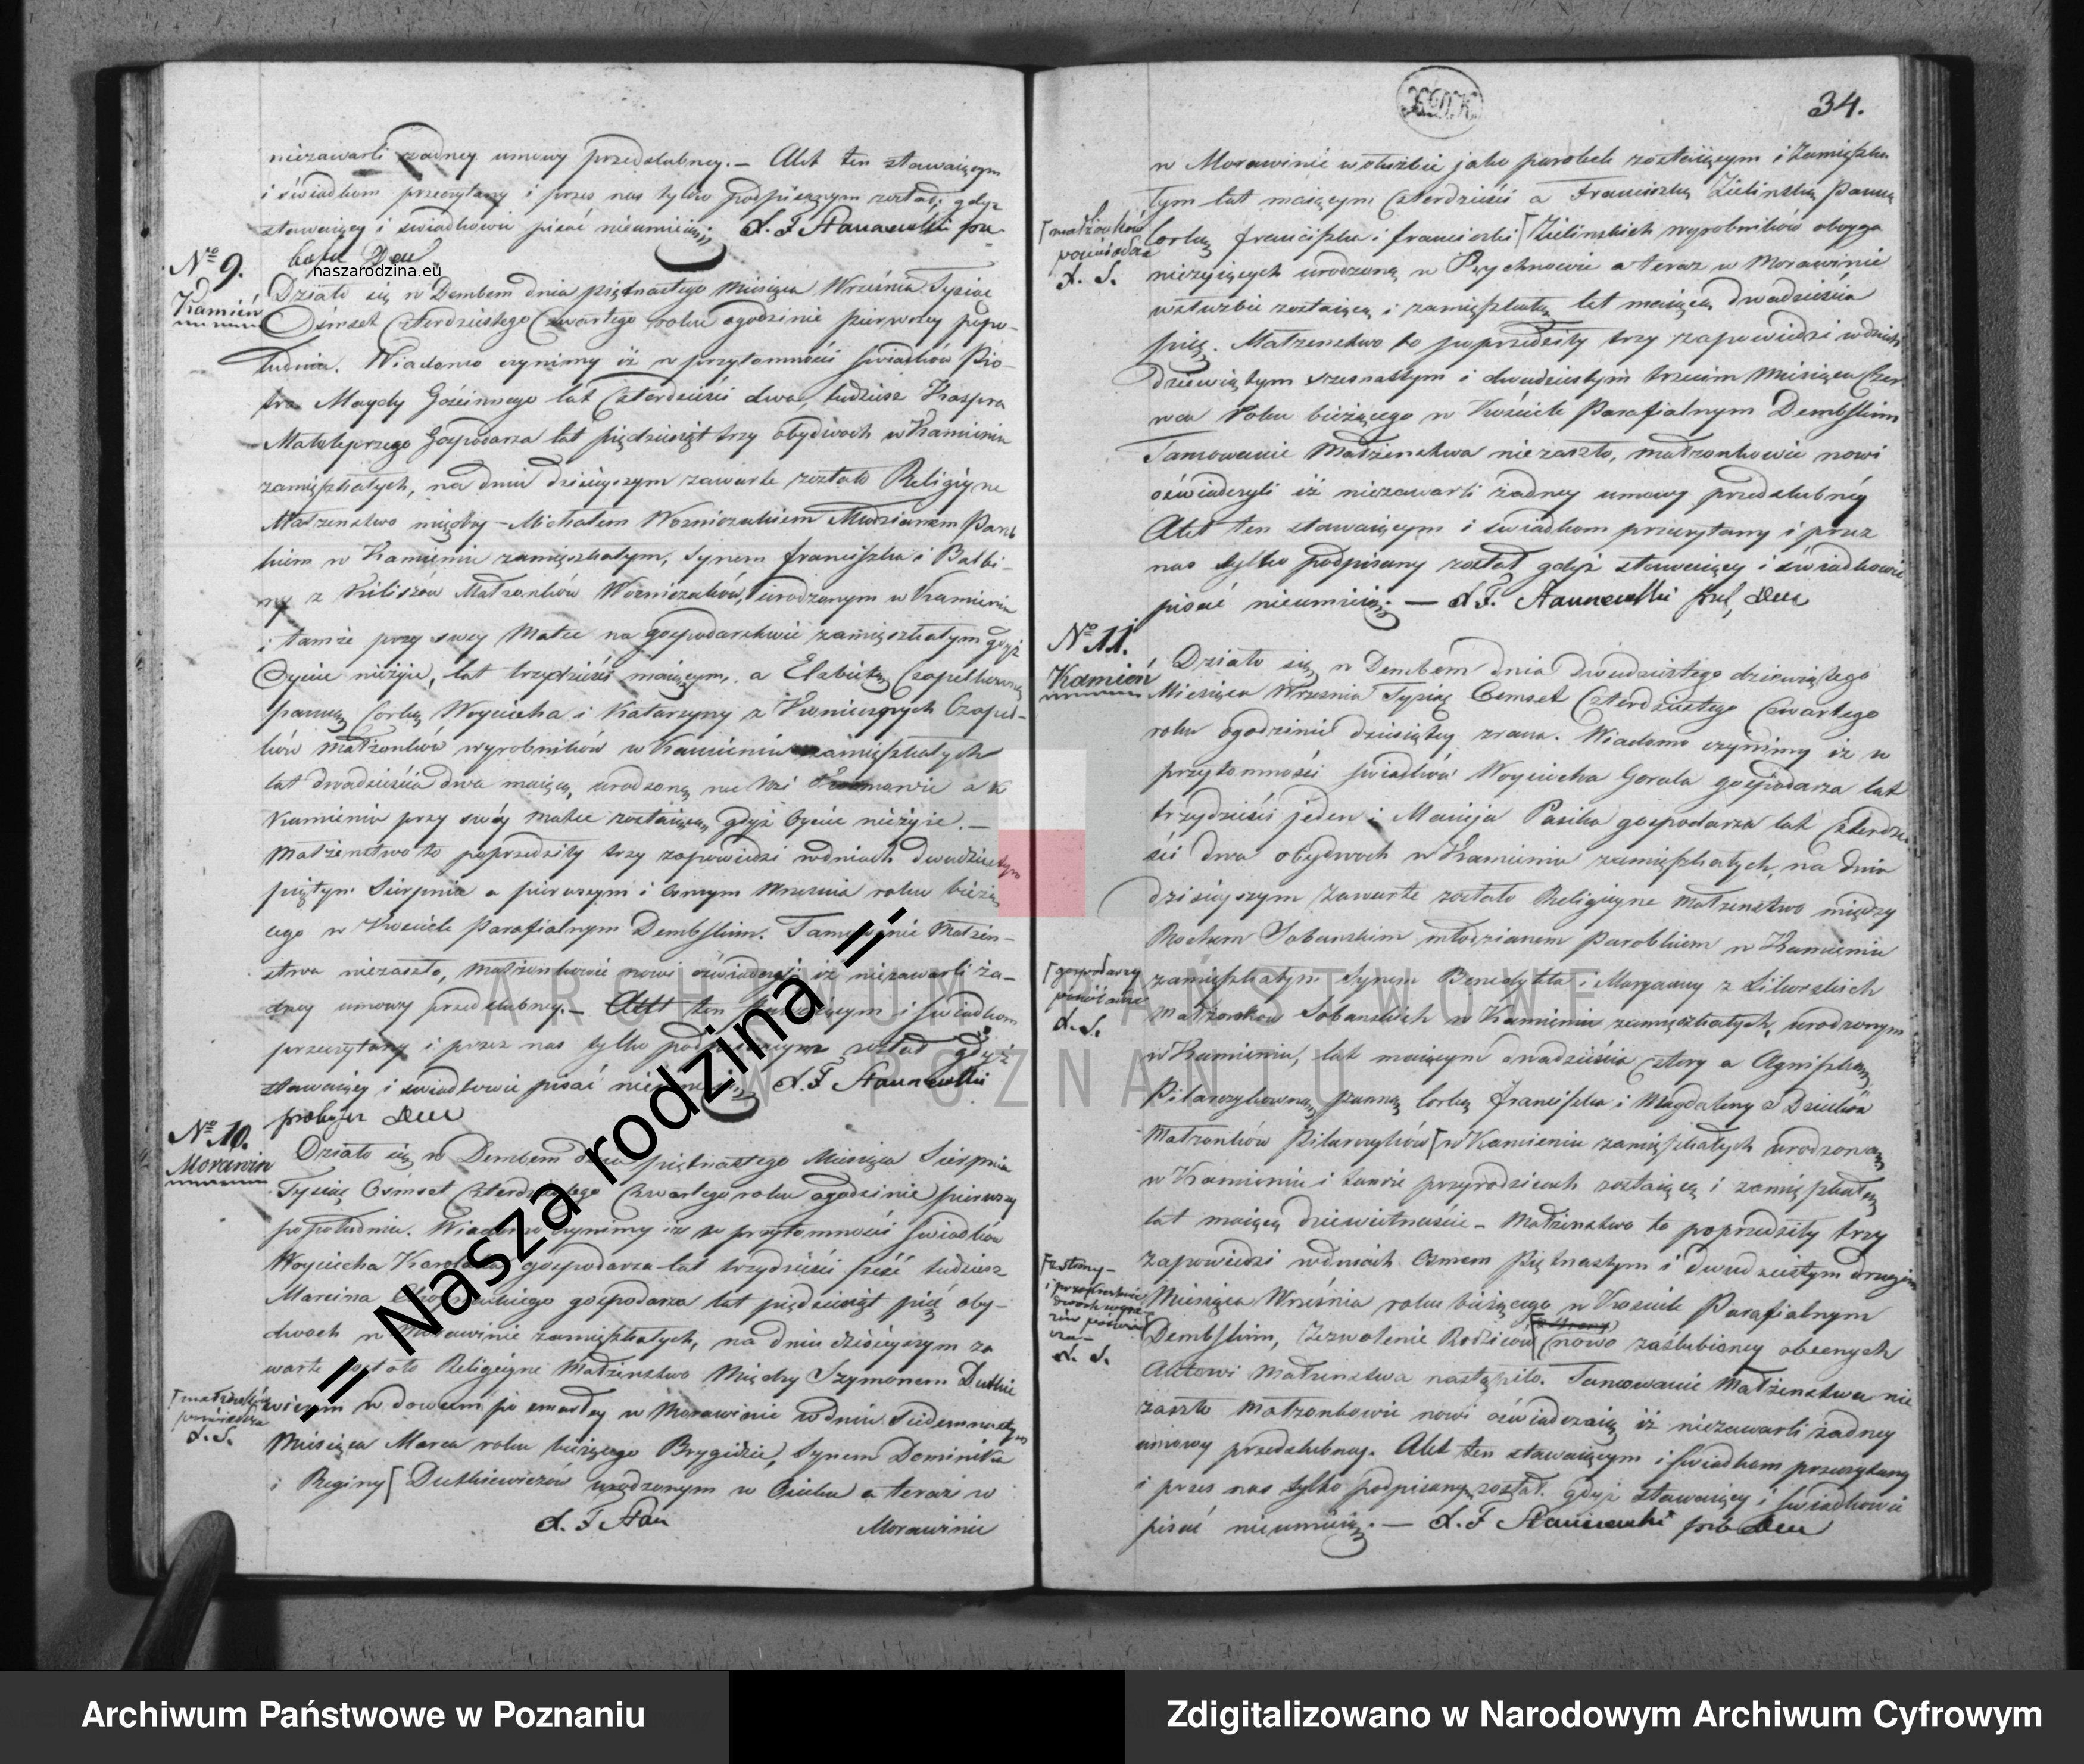 niezawarli żadney umowy przedślubney. – Akt ten stawaiącym
i świadkom przeczytany i przez nas tylko podpisanym został, gdyż
stawaiący i świadkowie pisać nieumieią. X. F. Stanowski
naszarodzina.eu
No 9.
Kamień
Działo się w Dembem dnia piętnastego Miesiąca Września Tysiąc
Ośmset Czterdziestego Czwartego roku ogodzinie pierwszey popo-
łudniu. Wiadomo czynimy iż w przytomności świadków Pio-
tra Maydy Gościnnego lat Czterdzieści dwa, tudzież Kaspra
Gospodarza lat pięćdziesiąt trzy obydwóch w Kamieniu
zamięszkałych, na dniu dzisieyszym zawarte zostało Religiyne
Małżeństwo między – Michałem Wozniczakiem Młodzianem Parob
kiem w Kamieniu zamięszkałym, Synem Franciszka i Balbi-
ny z Kiliszów Małżonków Wozniczaków, urodzonym w Kamieniu
i tamże przy swey Matce na gospodarstwie zamięszkałym gdyż
Oyciec nieżyie, lat trzydzieści maiącym, a Elzbietą Czapelkowną
panną Corką Woyciecha i Katarzyny z Czapel-
ków małżonków wyrobników w Kamieniu zamięszkałych
lat dwadzieścia dwa maiącą, urodzoną na Wsi a w
Kamieniu przy swéy matce zostaiącą, gdyż Oyciec nieżyie. –
Małżeństwo to poprzedziły trzy zapowiedzi wdniach dwudziestym
piątym Sierpnia a pierwszym i ósmym Września roku bieżą
cego w Kościele Parafialnym Dembskim. Tamowanie Małżeń-
stwa niezaszło, Małżonkowie nowi oświadczyli iż niezawarli ża-
dney umowy przedślubney. – Akt ten stawaiącym i świadkom
przeczytany i przez nas tylko podpisanym został gdyż
stawaiący i świadkowie pisać nieumieią X. F. Stanowski
No 10.
Morawin
Działo się w Dembem dnia piętnastego Miesiąca Sierpnia
Tysiąc Ośmset Czterdziestego Czwartego roku ogodzinie pierwszey
popołudniu. Wiadomo czynimy iż w przytomności świadków
Woyciecha gospodarza lat trzydzieści sześć tudzież
Marcina gospodarza lat pięćdziesiąt pięć oby-
dwóch w Morawinie zamięszkałych, na dniu dzisieyszym za
warte zostało Religiyne Małżeństwo Między Szymonem Dutkie
wiczem wdowcem po zmarłey w Morawinie wdniu Siedemnastym
Miesiąca Marca roku bieżącego Brygidzie, Synem Dominika
i Reginy [Dutkiewiczów urodzonym w a teraz w
[małżonków
X. S.
X. F. Stan
Morawinie
34.
w Morawinie w służbie jako parobek zostaiącym i Zamięszka
łym lat maiącym Czterdzieści a Franciszką Zielinską Panną
Corką Franciszka i Franciszki [Zielinskich wyrobników oboyga
nieżyiących urodzoną w Rychnowie a teraz w Morawinie
wsłużbie zostaiącą i zamięszkałą lat maiącą dwadzieścia
pięć. Małżeństwo to poprzedziły trzy zapowiedzi wdniach
dziewiątym szesnastym i dwudziestym trzecim Miesiąca Czer
wca roku bieżącego w Kościele Parafialnym Dembskim
Tamowanie Małżeństwa niezaszło, małżonkowie nowi
oświadczyli iż niezawarli żadney umowy przedślubnéy
Akt ten stawaiącym i świadkom przeczytany i przez
nas tylko podpisany został gdyż stawaiący i świadkowie
pisać nieumieią. – X. F. Stanowski
[małżonków
X. S.
No 11.
Kamień
Działo się w Dembem dnia dwudziestego dziewiątego
Miesiąca Września Tysiąc Ośmset Czterdziestego Czwartego
roku ogodzinie dziesiątey zrana. Wiadomo czynimy iż w
przytomności świadków Woyciecha Gorala gospodarza lat
trzydzieści jeden i Macieja Pasika gospodarza lat Czterdzie
ści dwa obydwóch w Kamieniu zamięszkałych, na dniu
dzisieyszym zawarte zostało Religiyne Małżeństwo między
Rochem Sobanskim młodzianem Parobkiem w Kamieniu
zamięszkałym Synem Benedykta i Maryanny z
Małżonków Sobanskich w Kamieniu zamięszkałych, urodzonym
w Kamieniu, lat maiącym dwadzieścia cztery a Agnieszką
Pilarczykowną, panną Corką Franciszka i Magdaleny z
Małżonków Pilarczyków [w Kamieniu zamięszkałych urodzoną
w Kamieniu i tamże przyrodzicach zostaiącą i zamięszkałą
lat maiącą dziewietnaście – Małżeństwo to poprzedziły trzy
Zapowiedzi wdniach Osmem Piętnastym i Dwudziestym drugim
Miesiąca Września roku bieżącego w Kościele Parafialnym
Dembskim, Zezwolenie Rodziców nowo zaślubioney obecnych
Aktowi Małżeństwa nastąpiło. Tamowanie Małżeństwa nie
zaszło Małżonkowie nowi oświadczaią iż niezawarli żadney
umowy przedślubney. Akt ten stawaiącym i świadkom przeczytany
i przez nas tylko podpisany został. gdyż stawaiący i świadkowie
pisać nieumieią. – X. F. Stanowski
[gospodarzy
X. S.
X. S.
-= Nasza rodzina =-
ARCHIWUM PAŃSTWOWE
W POZNANIU
Archiwum Państwowe w Poznaniu
Zdigitalizowano w Narodowym Archiwum Cyfrowym